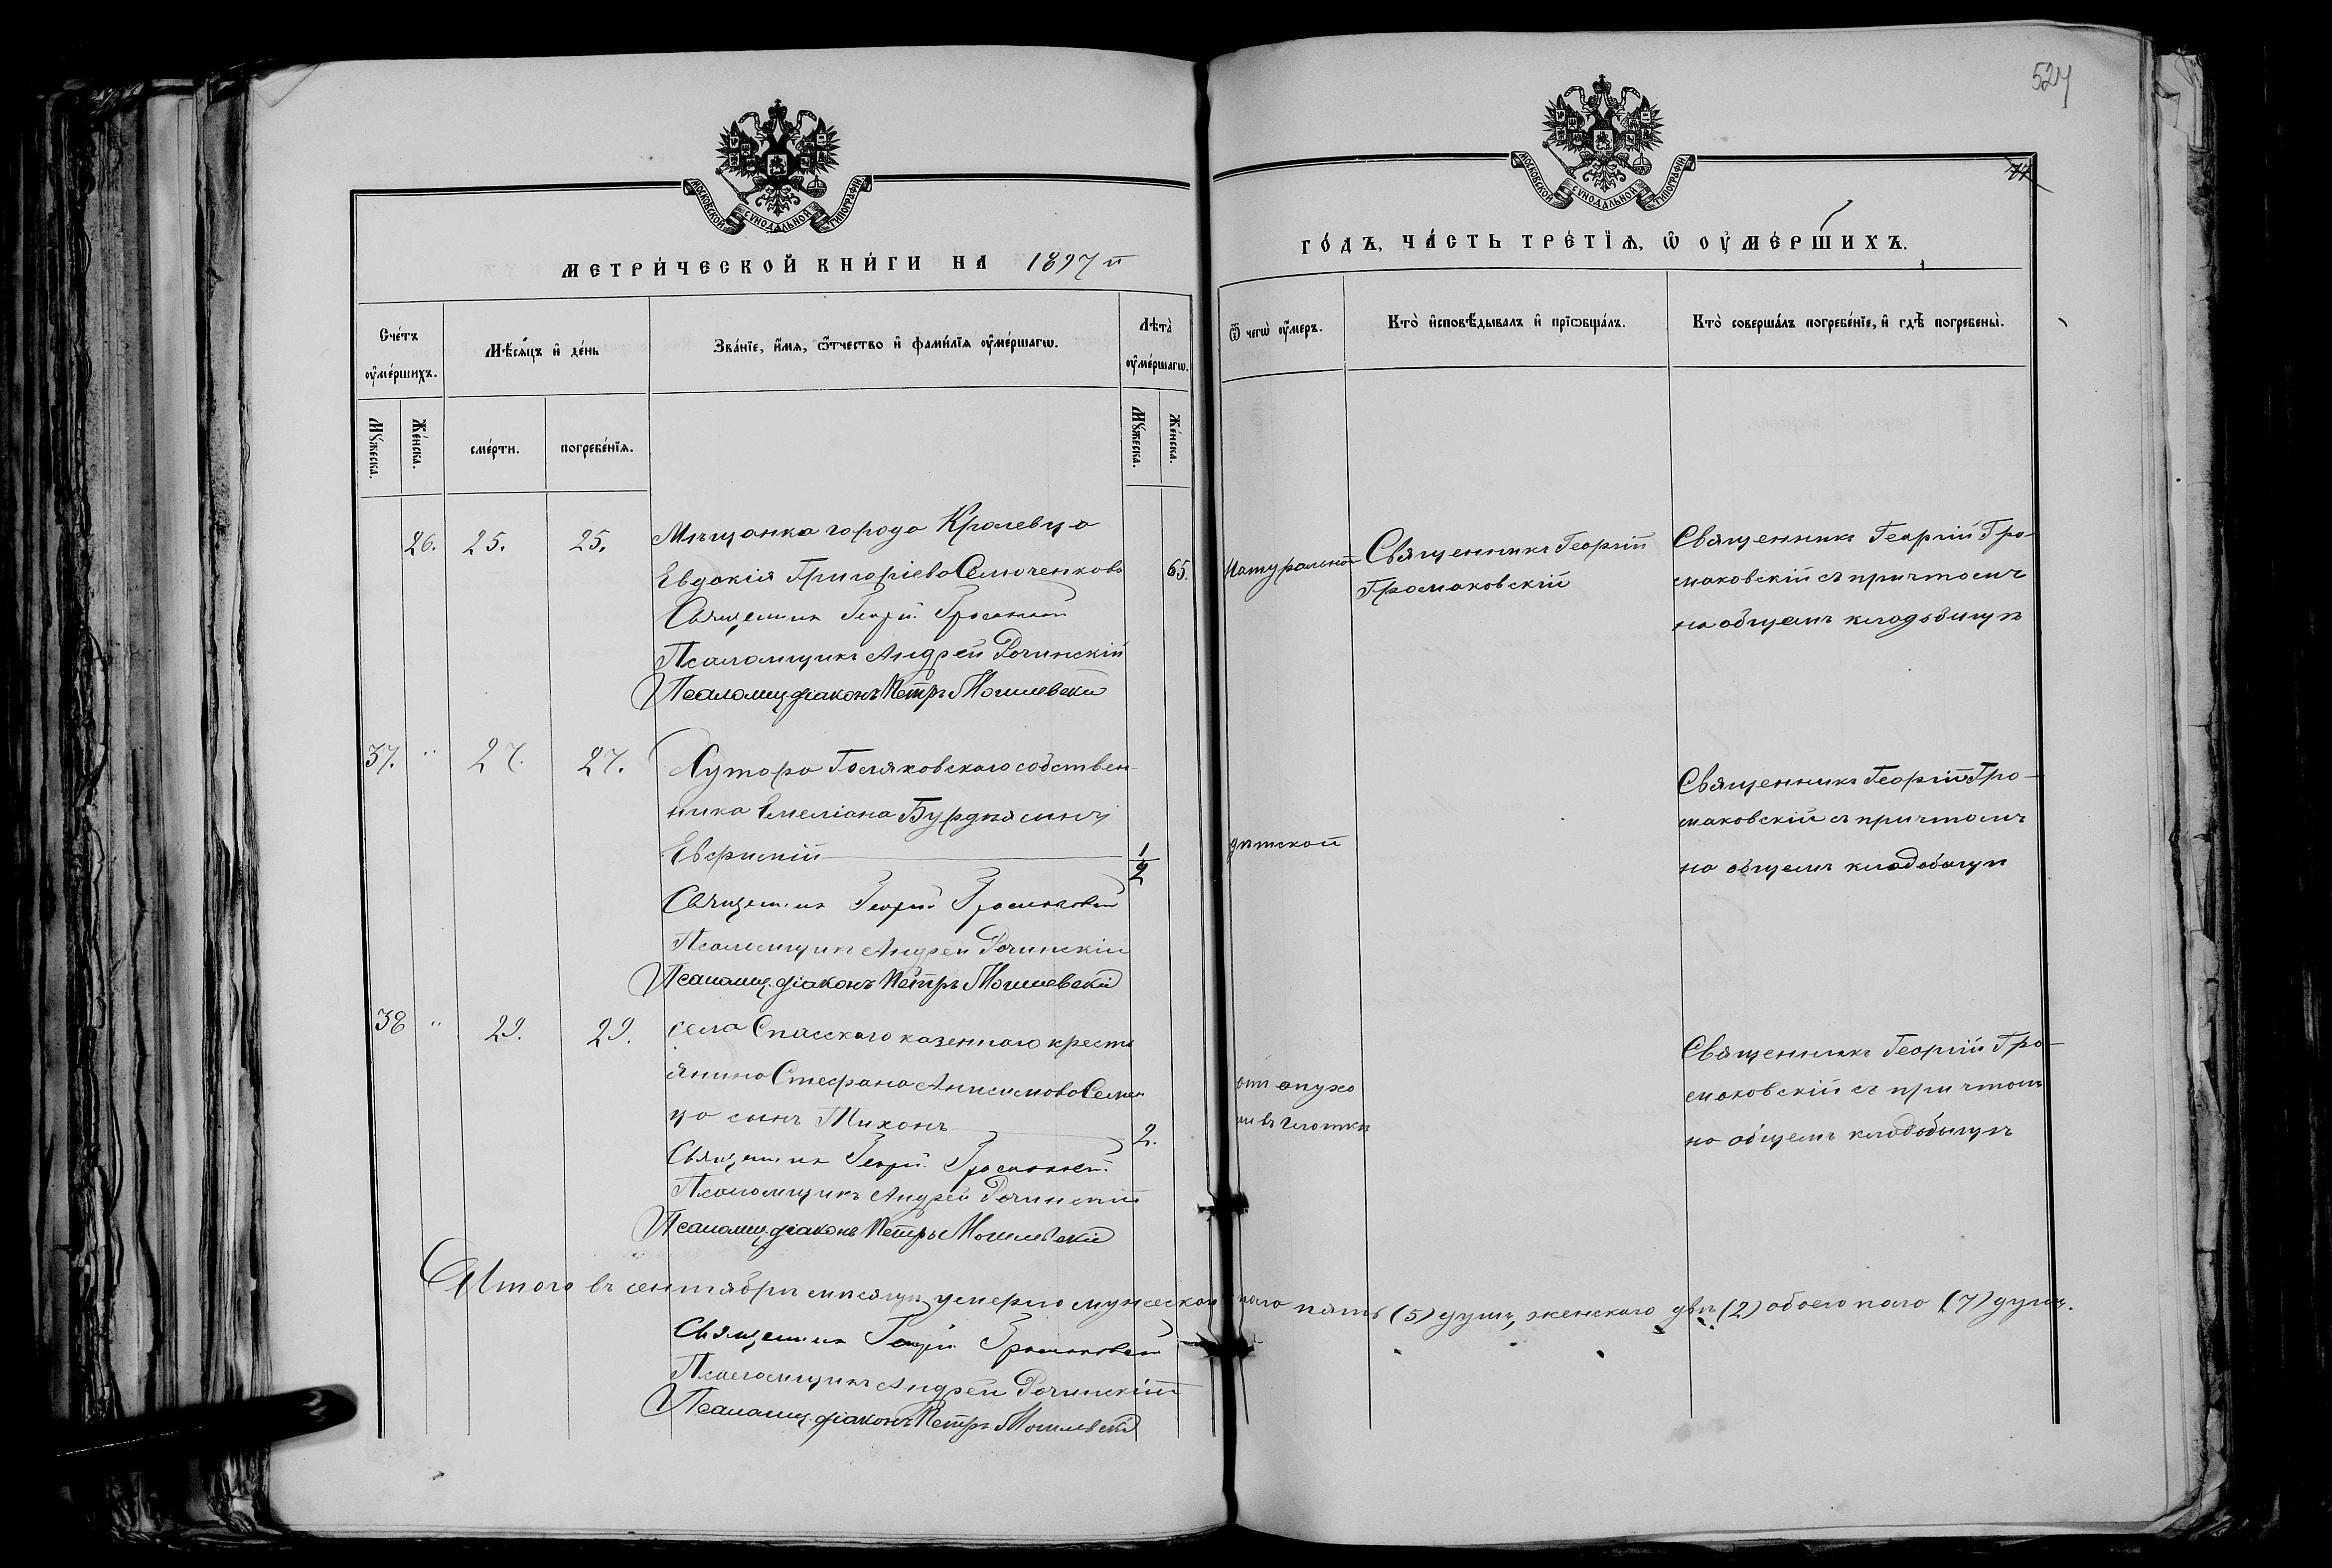 524
МОСКОВСКОЙ СУНОДАЛЬНОЙ ТИПОГРАФІИ
МОСКОВСКОЙ СУНОДАЛЬНОЙ ТИПОГРАФІИ
МЕТРИ́ЧЕСКОЙ КНИ́ГИ НА 1897 й
ГО́ДЪ, ЧА́СТЬ ТРЕ́ТЇѦ, Ѡ҆ ОУ҆МЕ́РШИХЪ.
Сче́тъ оу҆ме́ршихъ.
Мѣ́сѧцъ и҆ де́нь
Зва́нїе, и҆́мѧ, ѻ҆́тчество и҆ фамн́лїѧ оу҆ме́ршагѡ.
Лѣта̀ оу҆ме́ршагѡ.
Ѿ чегѡ̀ оу҆́меръ.
Кто̀ и҆сповѣ́дывалъ и҆ прїѡбща́лъ.
Кто̀ соверша́лъ погребе́нїе, и҆ гдѣ̀ погребены̀.
Мꙋ́жеска.
Же́нска.
сме́рти.
погребе́нїѧ.
Мꙋ́жеска.
Же́нска.
26. 25. 25. Мѣщанка города Кролевца
Евдокія Григоріева Семоченкова 65.
Священникъ Георгій Громаковскій
Псаломщикъ Андрей Рочинскій
Псаломщ. діаконъ Петръ Могилевскій
Натуральной
Священникъ Георгій
Громаковскій
Священникъ Георгій Гро-
маковскій съ причтомъ
на общемъ кладбищѣ
37. " 27. 27. Хутора Голяковскаго собствен-
ника Емеліана Бурдыя сынъ
Евфимій 1/2
Священникъ Георгій Громаковскій
Псаломщикъ Андрей Рочинскій
Псаломщ. діаконъ Петръ Могилевскій
дѣтской
Священникъ Георгій Гро-
маковскій съ причтомъ
на общемъ кладбищѣ
38 " 29. 29. села Спасскаго казеннаго кресть
янина Стефана Анисимова Семен
ца сынъ Тихонъ 2.
Священникъ Георгій Громаковскій
Псаломщикъ Андрей Рочинскій
Псаломщ. діаконъ Петръ Могилевскій
отъ опухо
ли въ глоткѣ
Священникъ Георгій Гро-
маковскій съ причтомъ
на общемъ кладбищѣ
Итого въ сентябрѣ мѣсяцѣ умерло мужескаго пола пять (5) душъ, женскаго двѣ (2) обоего пола (7) душъ.
Священникъ Георгій Громаковскій
Псаломщикъ Андрей Рочинскій
Псаломщ. діаконъ Петръ Могилевскій